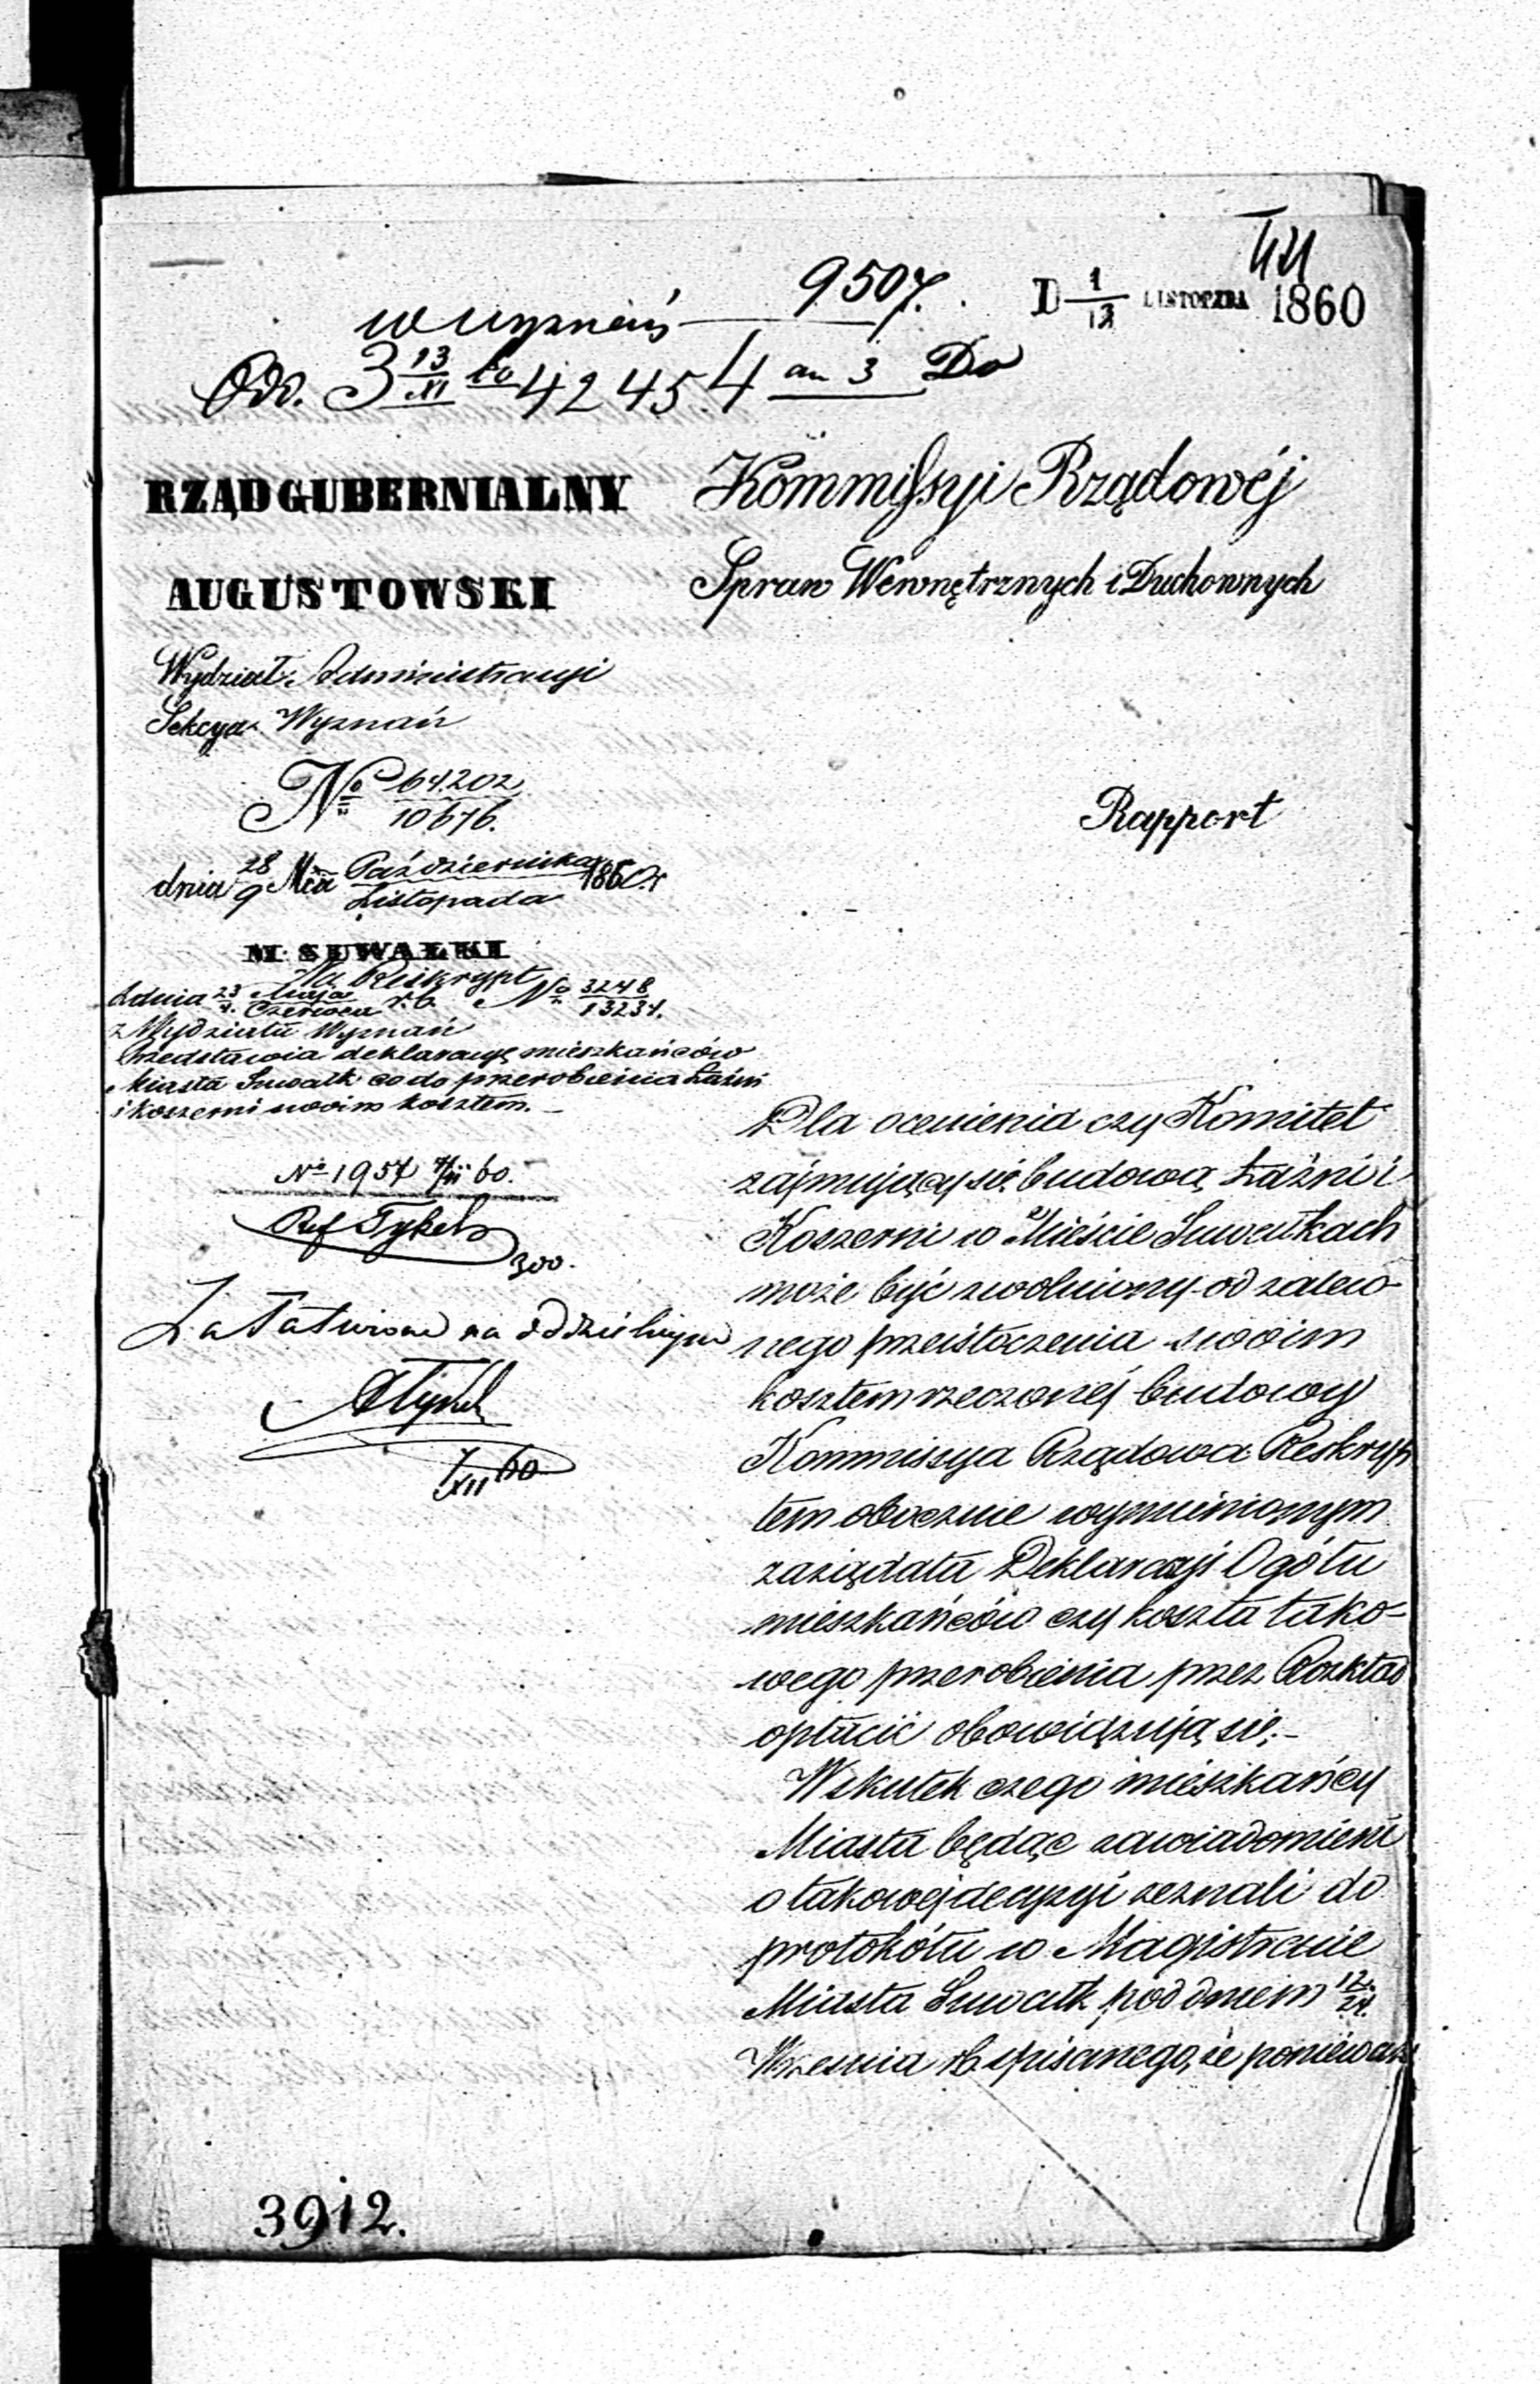 44
9507.
D 1/13 LISTOPADA 1860
w wyznań
Odd. 3 13/XI 60 42454 an 3 Do
RZĄD GUBERNIALNY
AUGUSTOWSKI
Wydział Administracyi
Sekcya Wyznań
No 64202/10676.
dnia 28/9 Mca Października/Listopada 1860 r
M. SUWAŁKI
Na Reskrypt
z dnia 23/4 Maja/Czerwca r.b. No 3248/13234.
z Wydziału Wyznań
Przedstawia deklaracyę mieszkańców
Miasta Suwałk co do przerobienia Łaźni
i koszerni swoim kosztem.
No 1957 60.
Ref Tykel
300.
Załatwione na oddzielnym
XII 60
Kommissyi Rządowéj
Spraw Wewnętrznych i Duchownych
Rapport
Dla ocenienia czy Komitet
zajmujący się budową Łaźni i
Koszerni w Mieście Suwałkach
może być zwolniony od
nego przeistoczenia swoim
kosztem rzeczonéj budowy
Kommissya Rządowa Reskryp
tem obocznie wymienionym
zażądała Deklaracyi Ogółu
mieszkańców czy koszta tako-
wego przerobienia przez Rozkład
opłacić obowiązują się.-
Wskutek czego mieszkańcy
Miasta będąc zawiadomieni
o takowéj decyzyi zeznali do
protokółu w Magistracie
Miasta Suwałk pod dniem 12/24.
Września rb spisanego, że ponieważ
3912.